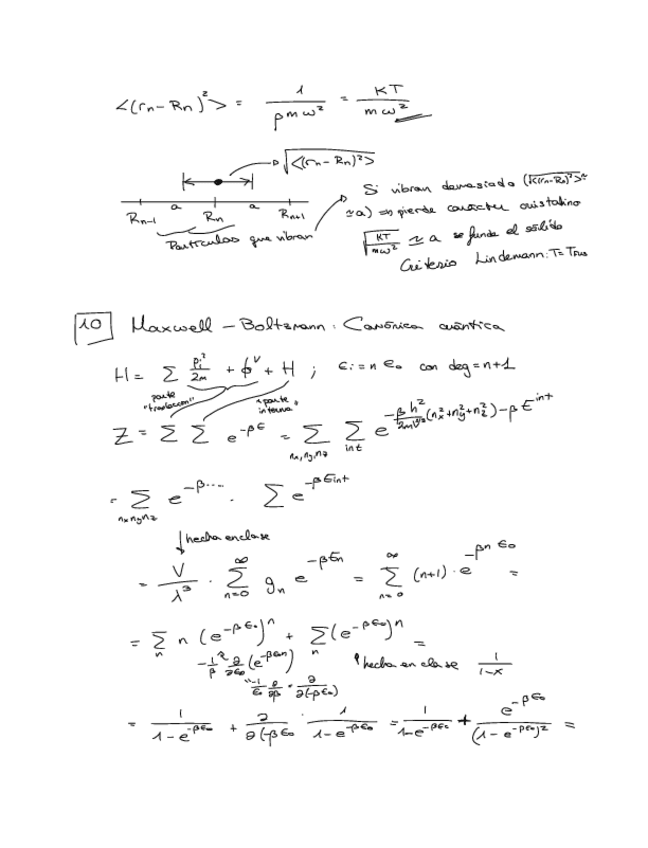 <(rn - Rn)²> = 1/(βmω²) = KT/(mω²)
√<(rn - Rn)²>
Si vibran demasiado (√<(rn-Rn)²> ≈
≃ a) ⇒ pierde carácter cristalino
a a
Rn-1 Rn Rn+1
Partículas que vibran
√(KT/mω²) ≃ a se funde el sólido
Criterio Lindemann: T = Tfus
10 Maxwell - Boltzmann: Canónica cuántica
H = Σ pi²/2m + ϕ^V + H ; ϵi = n ϵ0 con deg = n+1
parte "traslacion" "parte interna"
Z = Σ Σ e^(-βϵ) = Σ_(nx,ny,nz) Σ_int e^(-β h²/(2m V^(2/3)) (nx²+ny²+nz²) - β E^int)
= Σ_(nx ny nz) e^(-β....) . Σ e^(-βEint)
↓ hecha en clase
= V/λ³ · Σ_(n=0)^∞ gn e^(-βEn) = Σ_(n=0)^∞ (n+1) · e^(-βn ϵ0) =
= Σ_n n (e^(-βϵ0))^n + Σ_n (e^(-βϵ0))^n =
-1/β ∂/∂ϵ0 (e^(-βϵ0n)) ↑ hecha en clase 1/(1-x)
"-1/ϵ0 ∂/∂β = ∂/∂(-βϵ0)
= 1/(1-e^(-βϵ0)) + ∂/∂(-βϵ0 · 1/(1-e^(-βϵ0)) = 1/(1-e^(-βϵ0)) + e^(-βϵ0)/(1-e^(-βϵ0))² =